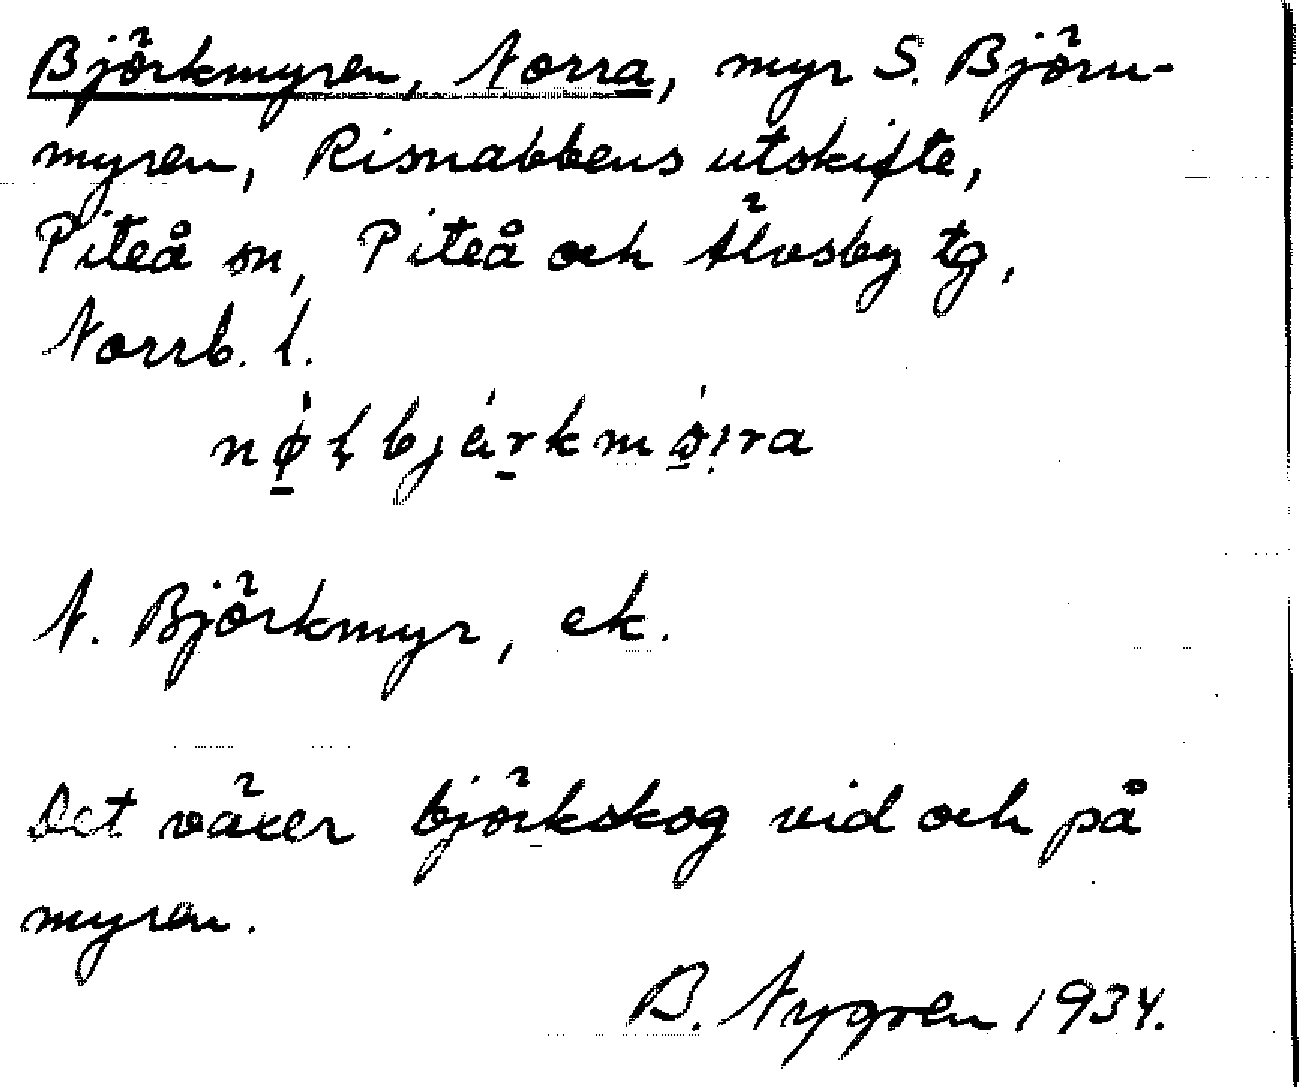 Björkmyren, Norra, myr S. Björn-
myren, Risnabbens utskifte,
Piteå sn, Piteå och Älvsby tg,
Norrb. l.
N. Björkmyr, ek.
Det växer björkskog vid och på
myren.
B. Nygren 1934.